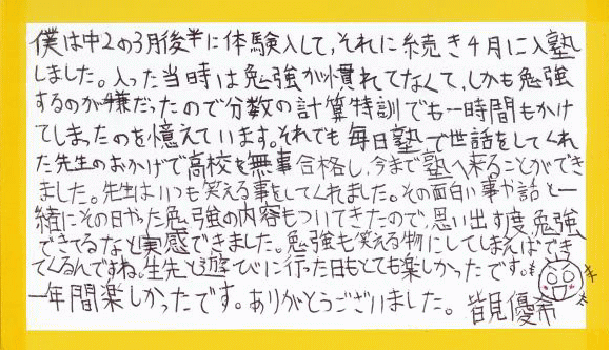 僕は中2の3月後半に体験入して,それに続き4月に入塾
しました。入った当時は勉強が慣れてなくて,しかも勉強
するのが嫌だったので分数の計算特訓でも一時間もかけ
てしまったのを憶えています。それでも毎日塾で世話をしてくれ
た先生のおかげで高校を無事合格し,今まで塾へ来ることができ
ました。先生はいつも笑える事をしてくれました。その面白い事や話と一
緒にその日やった勉強の内容もついてきたので,思い出す度,勉強
できてるなと実感できました。勉強も笑える物にしてしまえばでき
てくるんですね。生先と遊びに行った日もとても楽しかったです。
一年間楽しかったです。ありがとうございました。 皆見優希